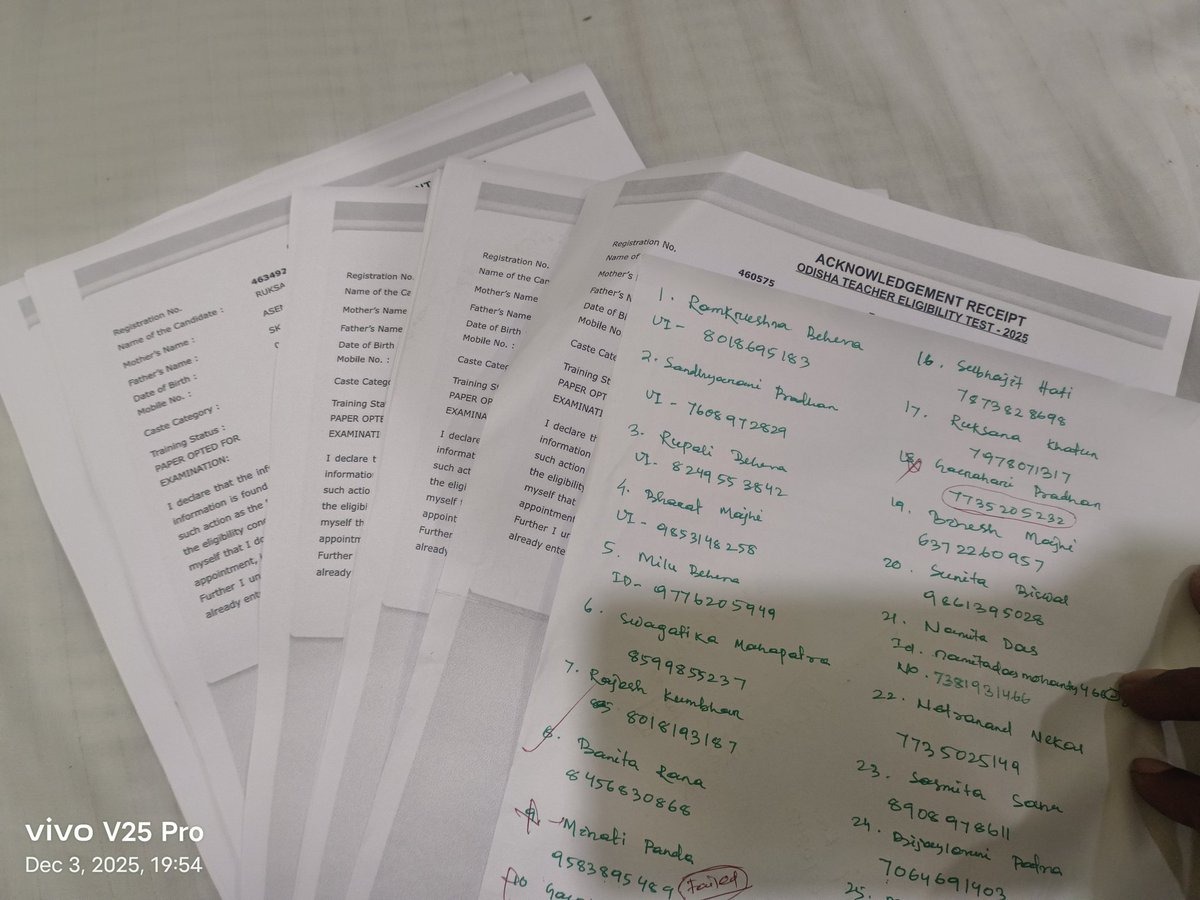 463492
RUKSA
Registration No.
Name of the Candidate :
ASE
Mother's Name :
SK
Father's Name :
Date of Birth :
Mobile No. :
Caste Category :
Training Status :
PAPER OPTED FOR
EXAMINATION:
I declare that the inf
information is found
such action as the
the eligibility con
myself that I do
appointment,
Further I un
already ente
Registration No.
Name of the Ca
Mother's Name
Father's Name
Date of Birth
Mobile No. :
Caste Categ
Training Sta
PAPER OPTE
EXAMINATI
I declare t
informatio
such action
the eligibi
myself th
appointm
Further
already
Registration No.
Name of the Can
Mother's Name
Father's Name
Date of Birth
Mobile No. :
Caste Cate
Training S
PAPER OP
EXAMINA
I declare
informati
such act
the eligi
myself
appoint
Further
already
Registration No.
Name of
Mother's
Father's N
Date of Bi
Mobile No
Caste Cate
Training St
PAPER OPT
EXAMINATI
I declare th
information
such action
the eligibility
myself that
appointment
Further I un
already ente
ACKNOWLEDGEMENT RECEIPT
ODISHA TEACHER ELIGIBILITY TEST - 2025
460575
1. Ramkrushna Behera
UI - 8018695183
2. Sandhyarani Pradhan
UI - 7608972829
3. Rupali Behera
UI - 8249553842
4. Bharat Majhi
UI - 9853148258
5. Milu Behera
ID - 9776205949
6. Swagatika Mahapatra
8599855237
7. Rajesh Kumbhar
8018193187
8. Banita Rana
8456830868
9. Minati Panda
9583895489 Failed
10
16. Subhajit Hati
7873828698
17. Ruksana Khatun
7978071317
18. Gourahari Pradhan
7735205232
19. Majhi
6372260957
20. Sunita Biswal
9861395028
21. Namita Das
Id. namitadasmohanty468
No. 7381931466
22. Netranand Nekar
7735025149
23. Sasmita Sana
8908978611
24. Padra
7064691403
25.
vivo V25 Pro
Dec 3, 2025, 19:54